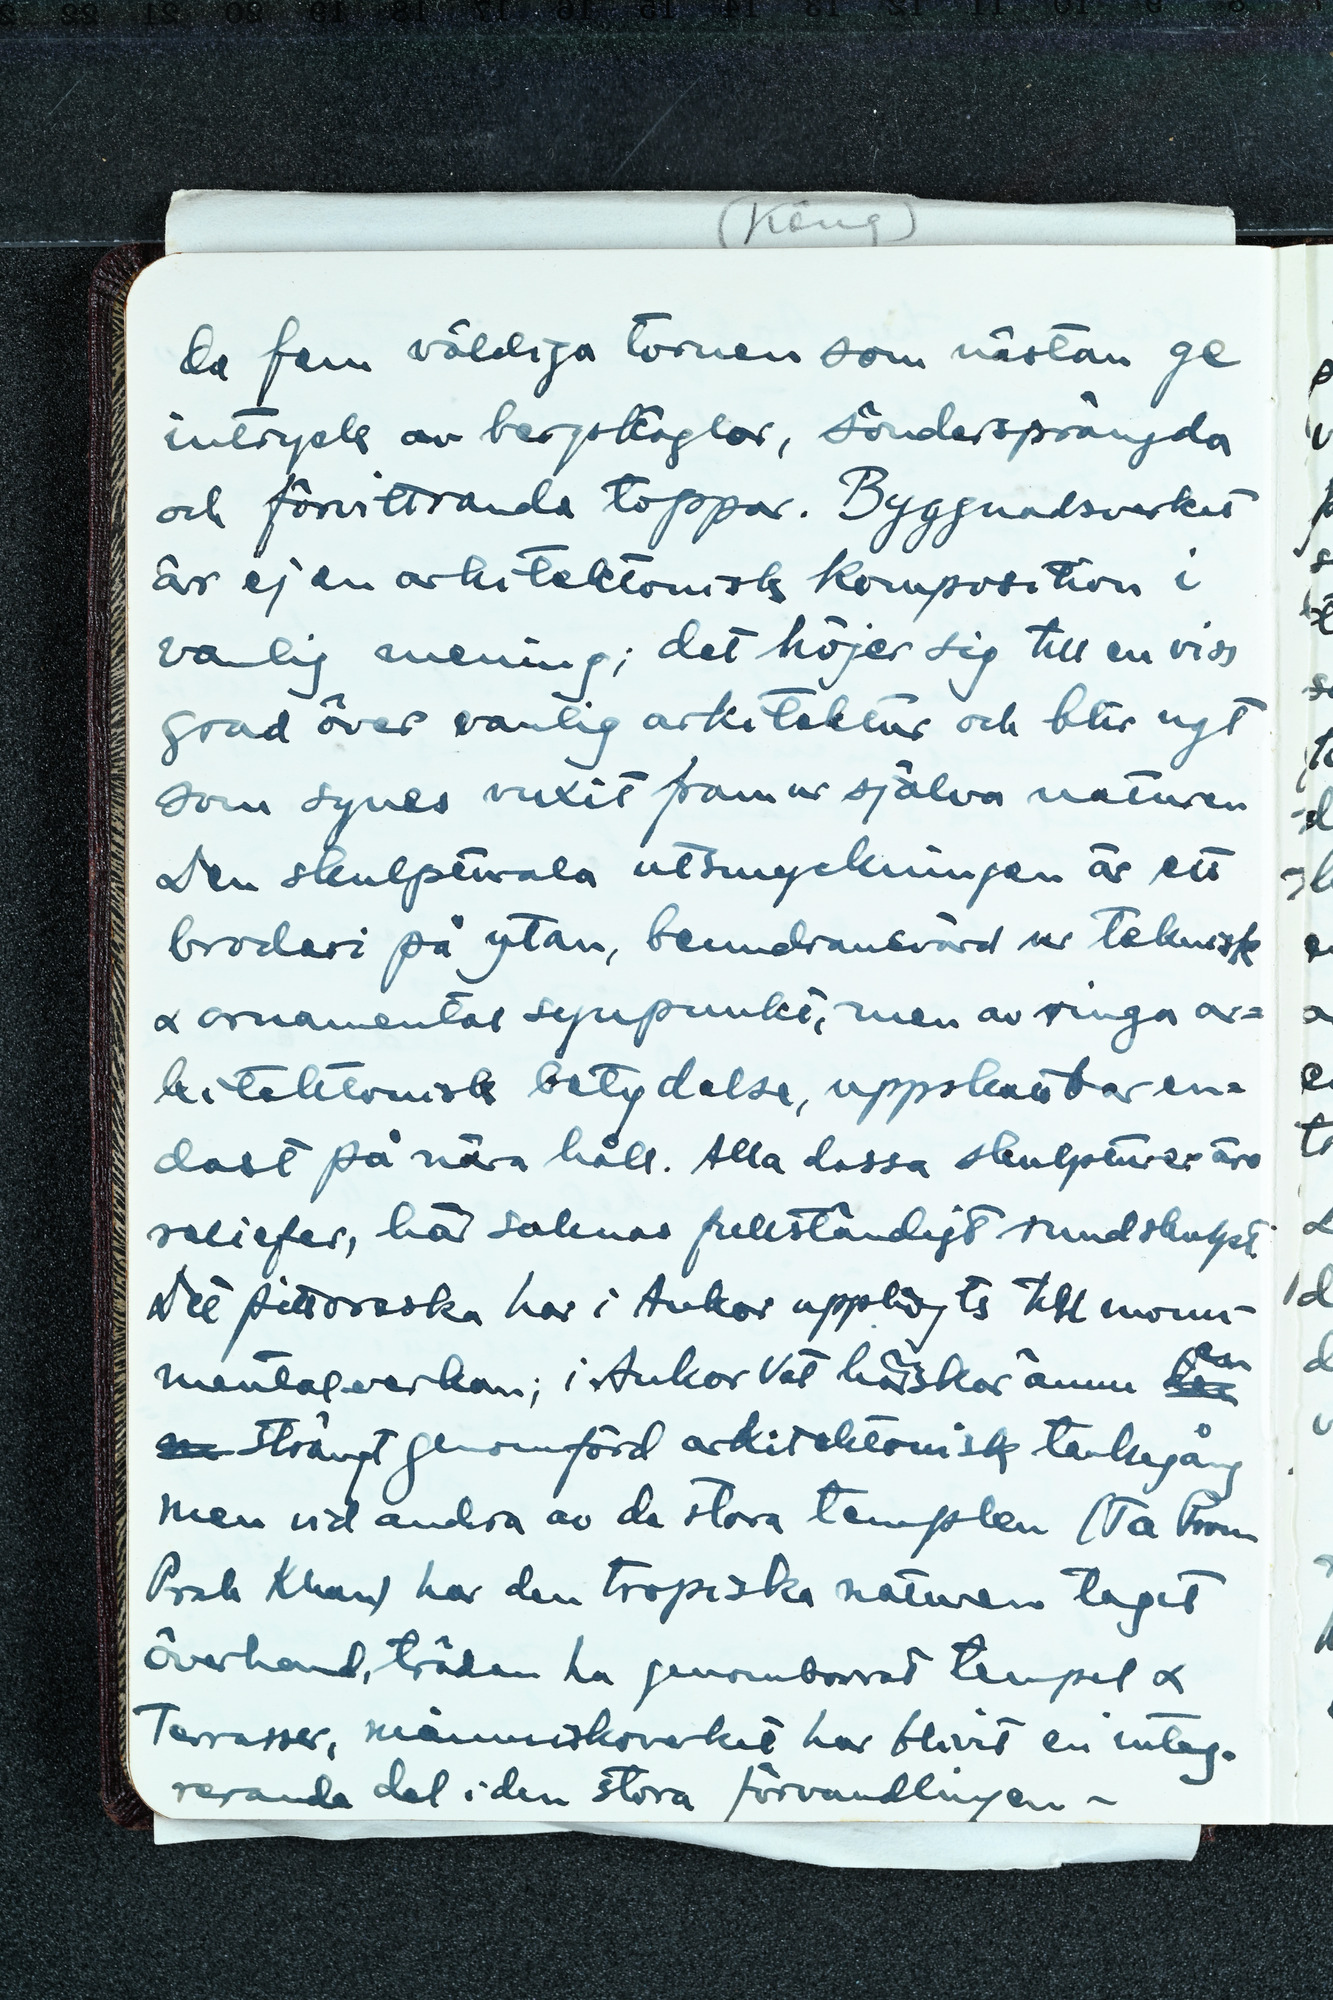 (Kong)
de fem väldiga tornen som nästan ge
intryck av bergskäglor, söndersprängda
och förvittrande toppar. Byggnadsverket
är ej en arkitektonisk komposition i
vanlig mening; det höjer sig till en viss
grad över vanlig arkitektur och blir ngt
som synes vuxit fram ur själva naturen
Den skulpturala utsmyckningen är ett
broderi på ytan, beundransvärd ur teknisk
& ornamental synpunkt, men av ringa ar=
kitektonisk betydelse, uppskattbar en=
dast på nära håll. Alla dessa skulpturer äro
reliefer, här saknas fullständigt rundskulpt.
Det pittoreska har i Ankor upphöjts till monu-
mentalverkan; i Ankor Vat härskar ännu en
strängt genomförd arkitektonisk tankegång
men vid andra av de stora templen (Ta Prom
Prah Khan) har den tropiska naturen taget
överhand, träden ha genomborrat tempel &
Terrasser, människoverket har blivit en integ-
rerande del i den stora förvandlingen ~